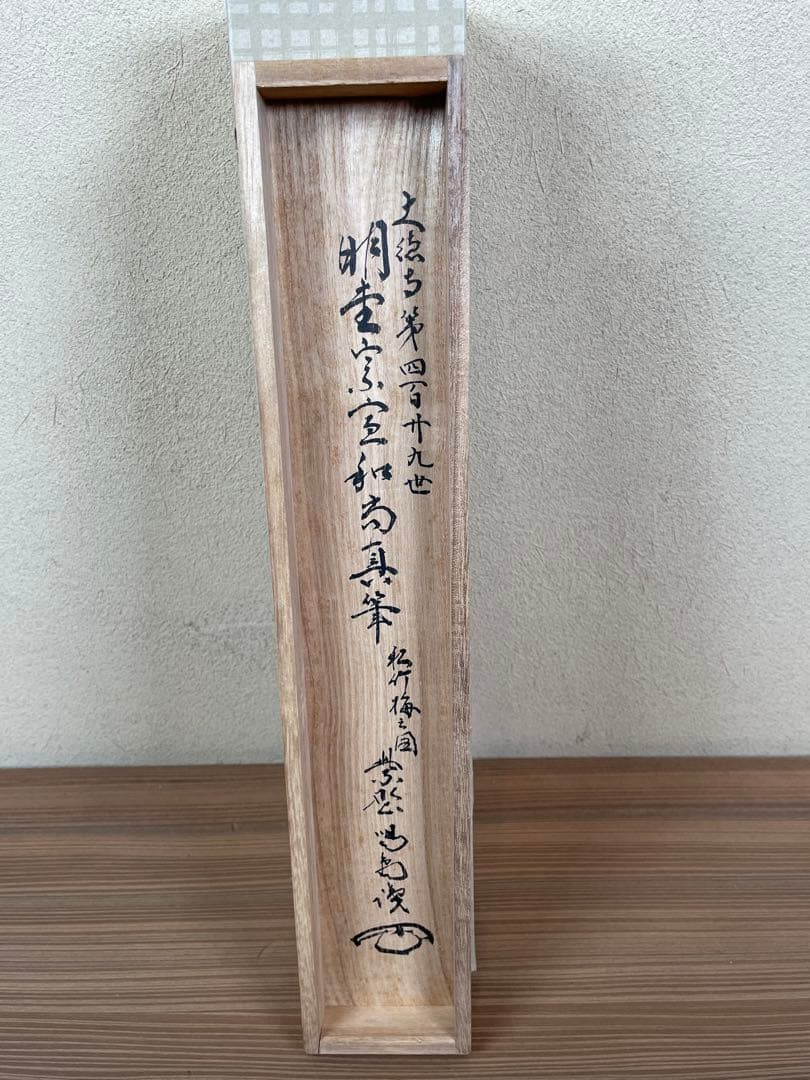 大徳寺第四百廿九世
明堂宗宣和尚真筆
松竹梅之図
紫野